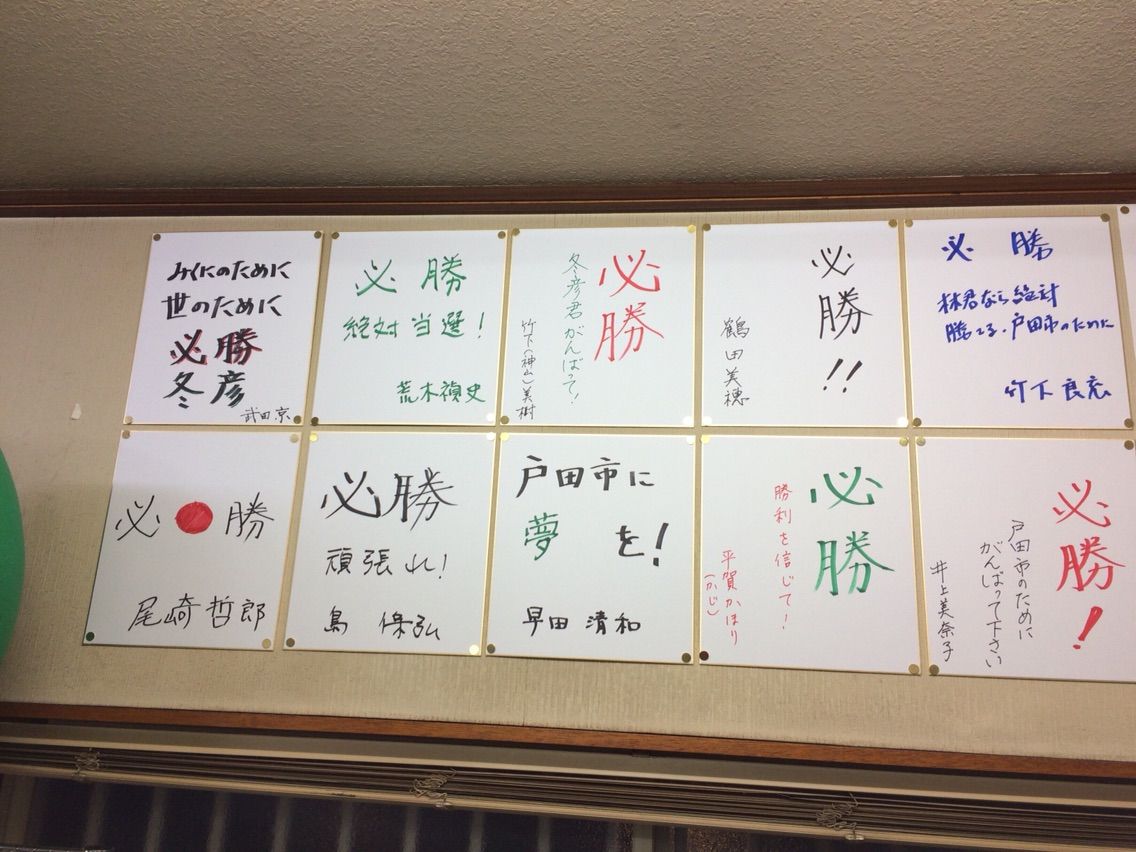 みくにのために
世のために
必勝
冬彦
武田京
必勝
絶対当選!
荒木禎史
必勝
冬彦君がんばって!
竹下(神山)美樹
必勝!!
鶴田美穂
必勝
林君なら絶対
勝てる。戸田市のために
竹下良充
必勝
尾崎哲郎
必勝
頑張れ!
島保弘
戸田市に
夢を!
早田清和
必勝
勝利を信じて!
平賀かほり
(かじ)
必勝!
戸田市のために
がんばって下さい
井上美奈子